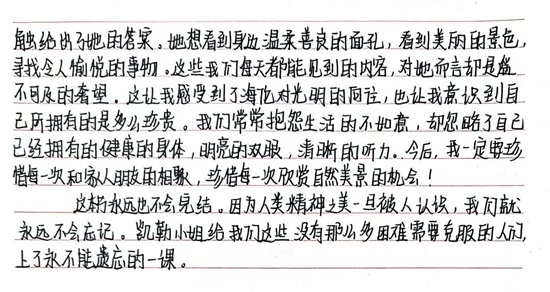 触给出了她的答案。她想看到身边温柔善良的面孔，看到美丽的景色，
寻找令人愉悦的事物。这些我们每天都能见到的内容，对她而言却是遥
不可及的奢望。这让我感受到了海伦对光明的向往，也让我意识到自
己所拥有的是多么珍贵。我们常常抱怨生活的不如意，却忽略了自己
已经拥有的健康的身体，明亮的双眼，清晰的听力。今后，我一定要珍
惜每一次和家人朋友的相聚，珍惜每一次欣赏自然美景的机会！
这将永远也不会完结。因为人类精神之美一旦被人认识，我们就
永远不会忘记。凯勒小姐给我们这些没有那么多困难需要克服的人们，
上了永不能遗忘的一课。